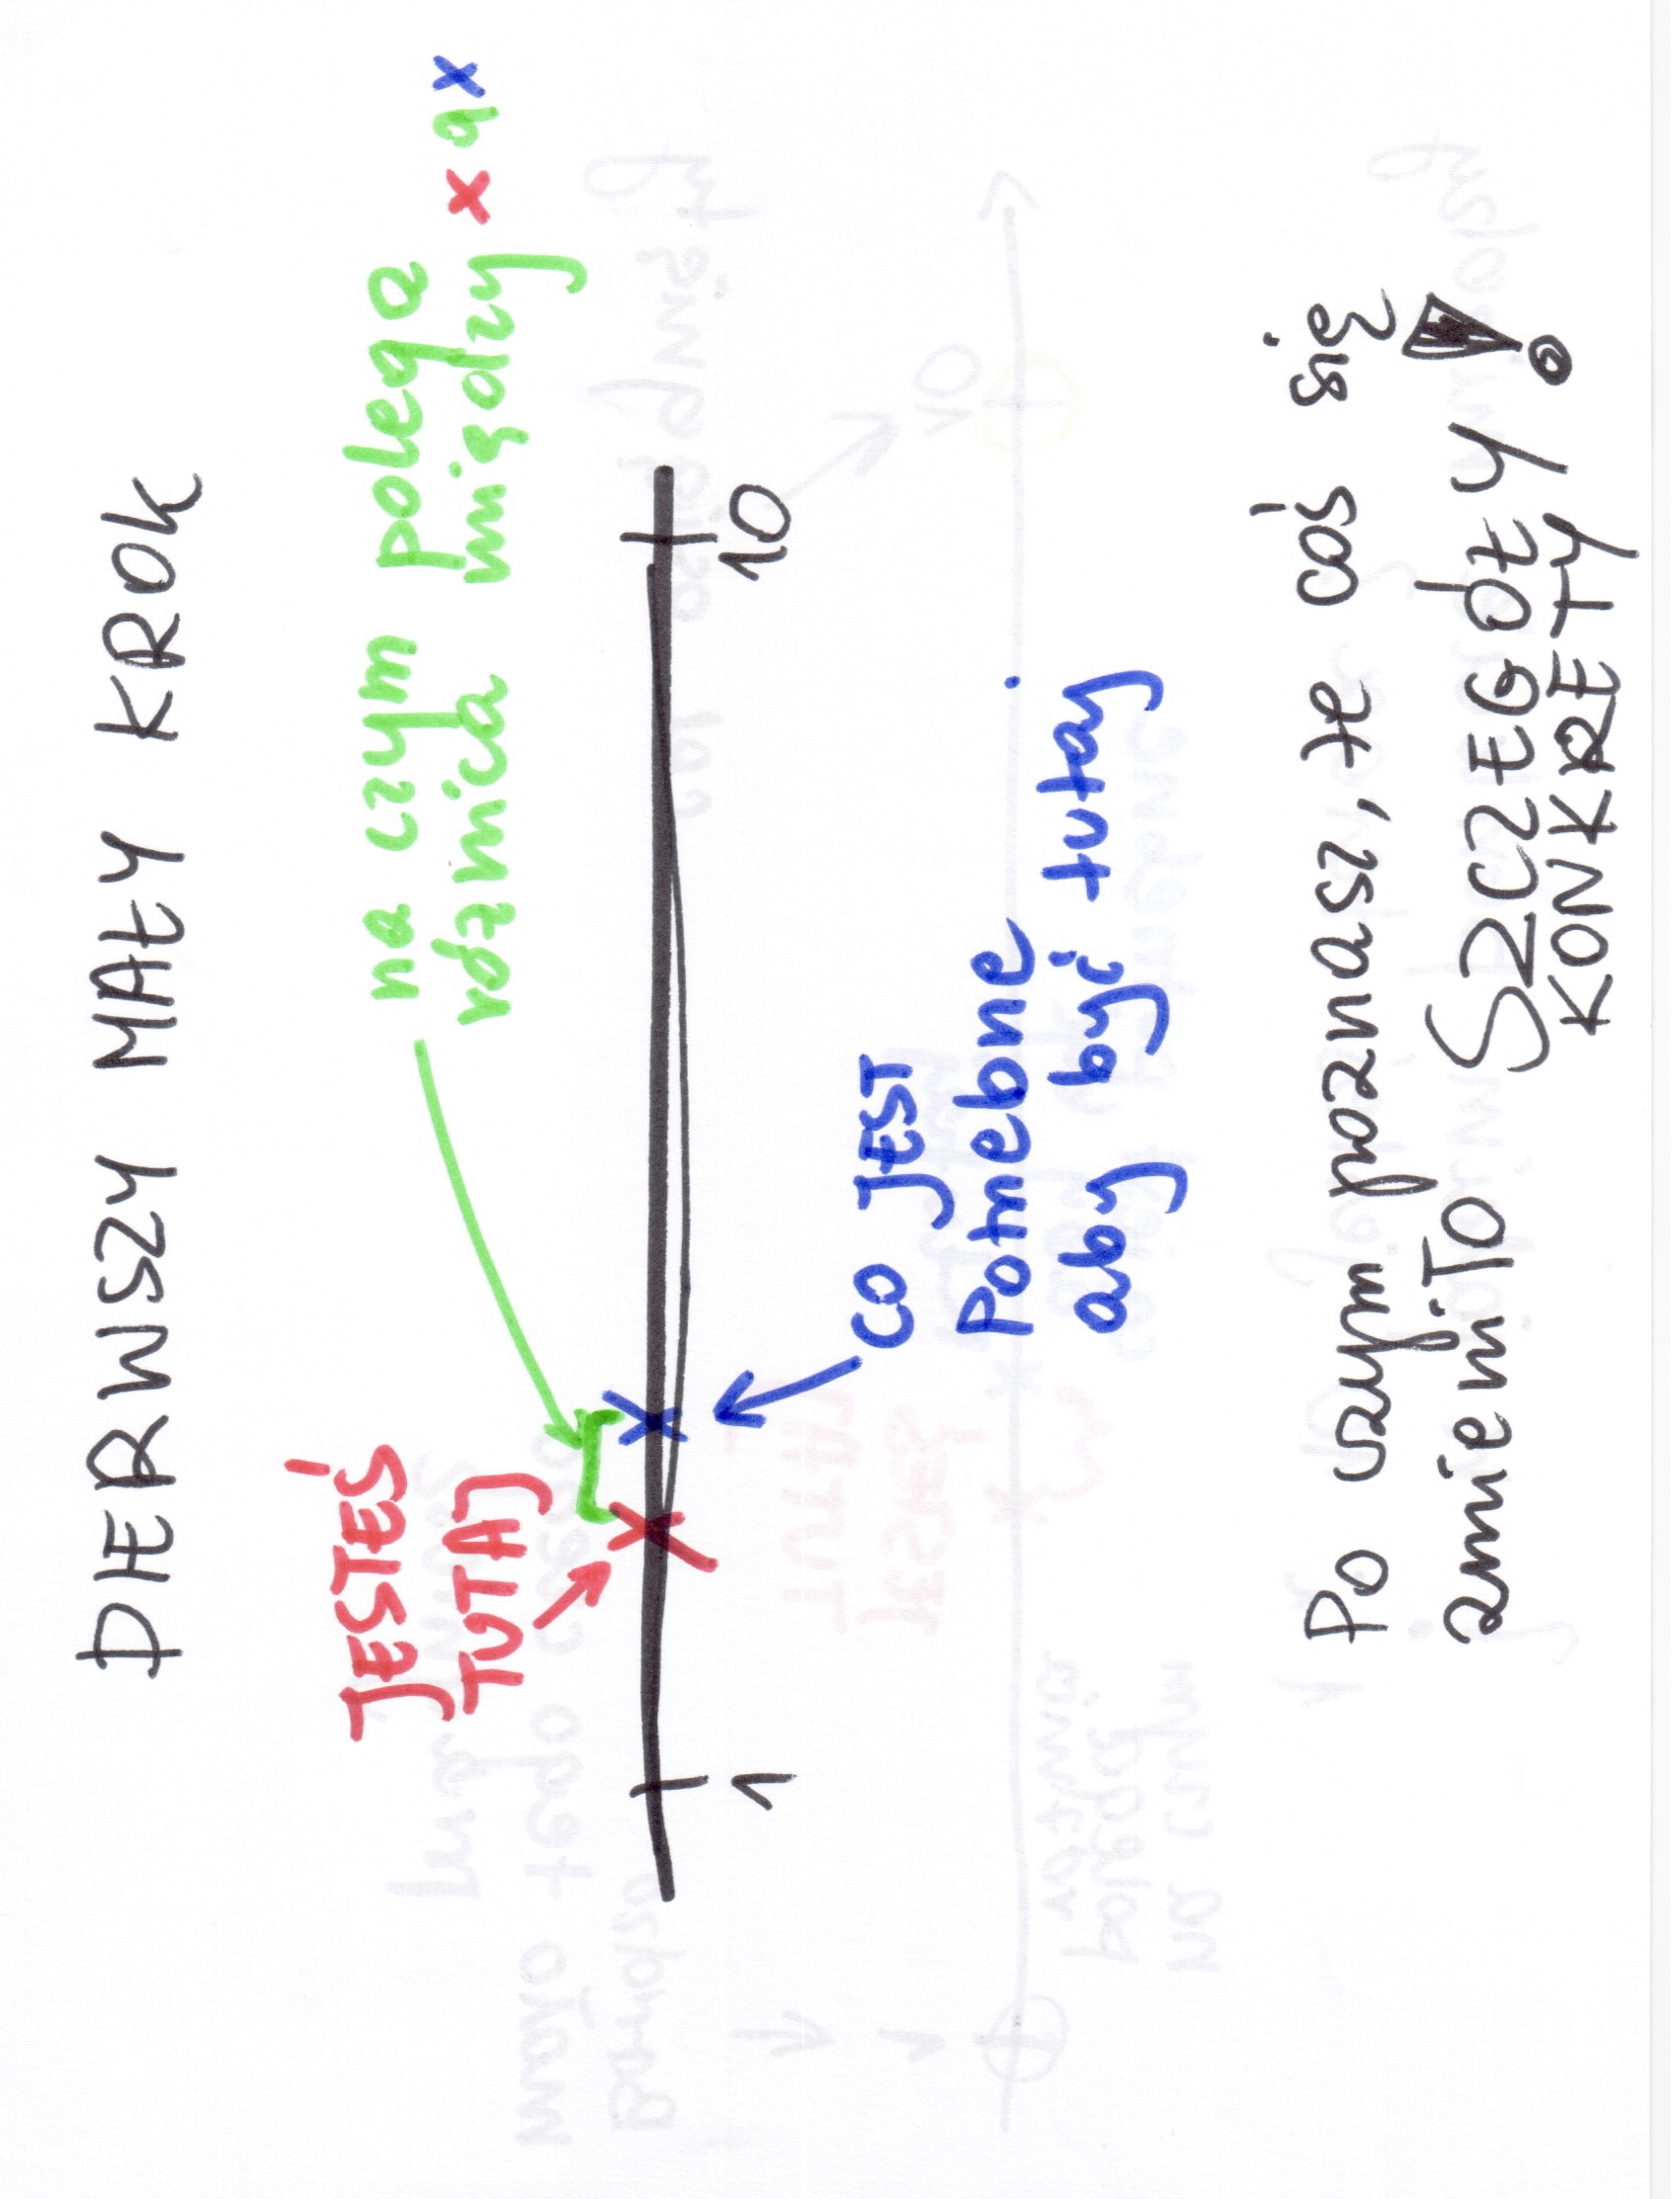 PIERWSZY MAŁY KROK
na czym polega
różnica między x a x
JESTEŚ
TUTAJ
1
10
CO JEST
Potrzebne
aby być tutaj
Po czym poznasz, że coś się
zmieni? To SZCZEGÓŁY
KONKRETY!